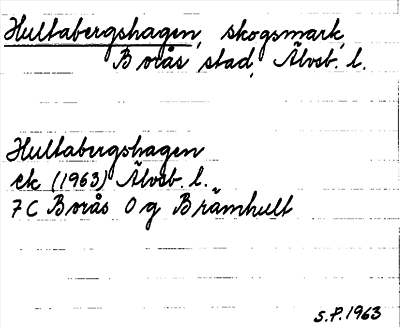 Hultabergshagen, skogsmark,
Borås stad, Älvsb. l.
Hultabergshagen
ek (1963) Älvsb. l.
7C Borås 0 g Brämhult
S.P. 1963